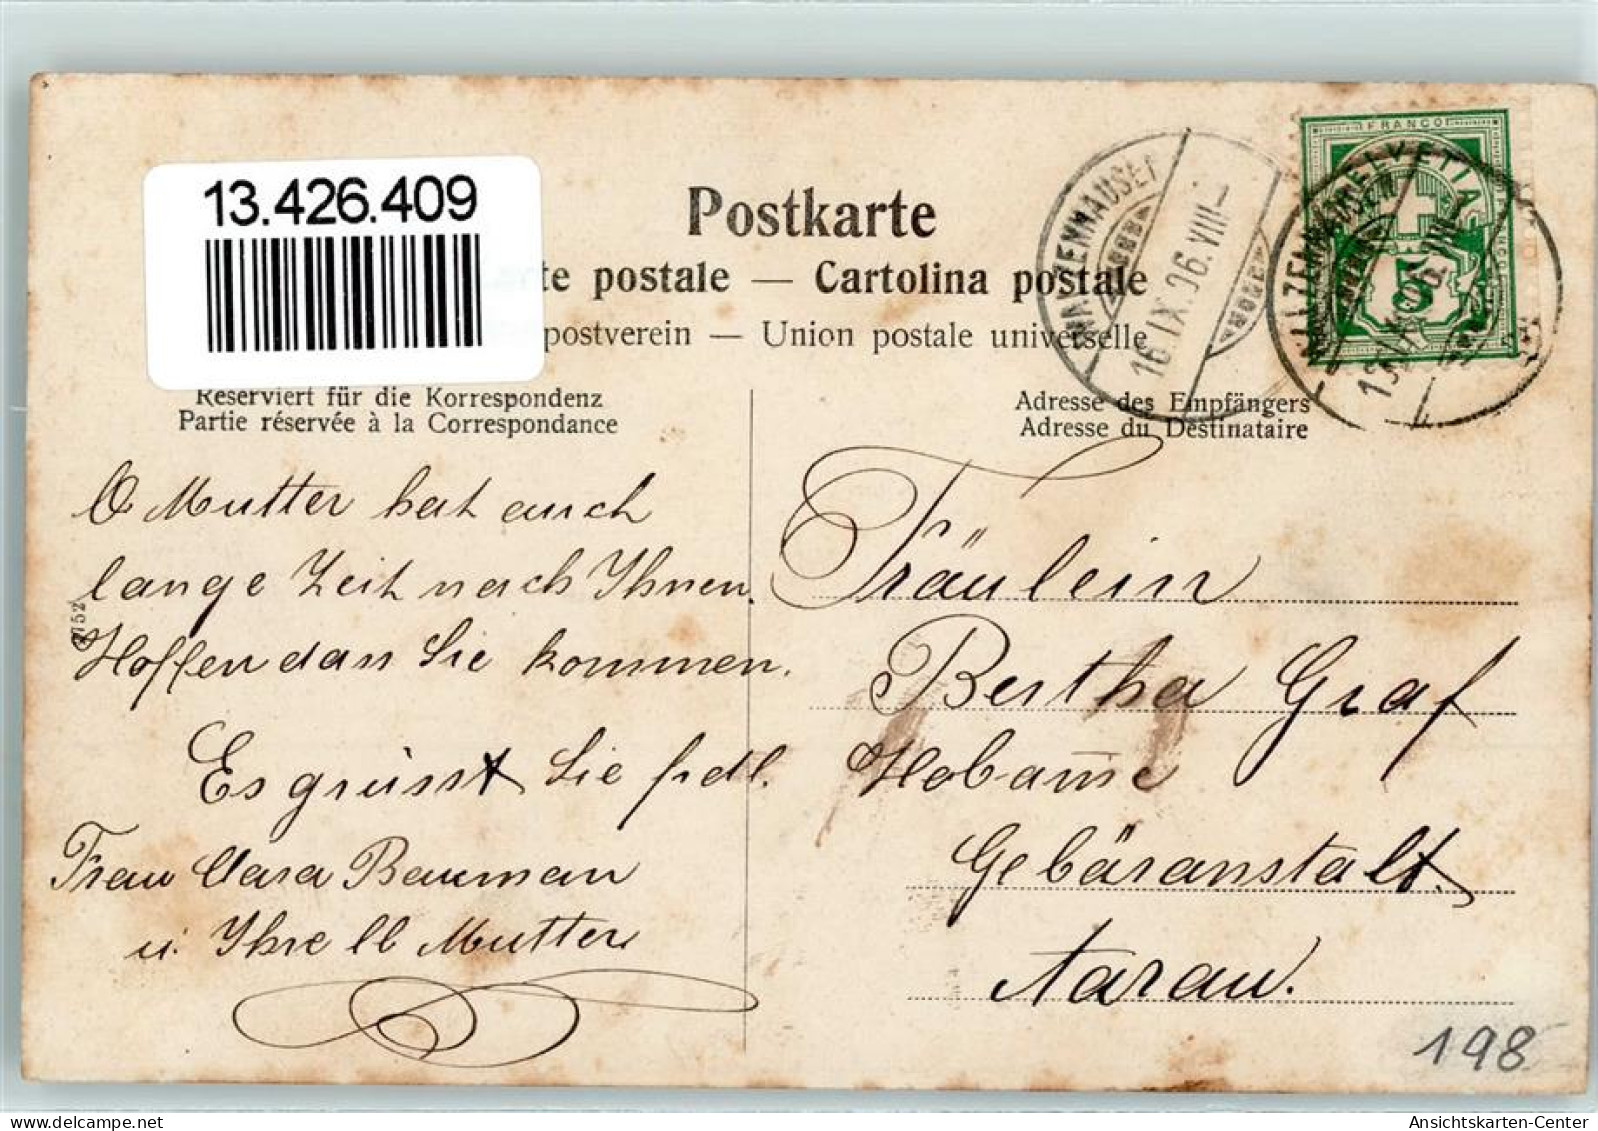 13.426.409
Postkarte
te postale — Cartolina postale
postverein — Union postale universelle
Reserviert für die Korrespondenz
Partie réservée à la Correspondance
Adresse des Empfängers
Adresse du Destinataire
FRANCO
HELVETIA
5
16.IX.06.VIII—
O Mutter hat auch
lange Zeit nach Ihnen.
Hoffen dan Sie kommen.
Es grüsst Sie frdl.
Frau Clara Bauman
u. Ihre lb Mutter
Fräulein
Bertha Graf
Hebam̄e
Gebäranstalt.
Aarau.
198
Ansichtskarten-Center